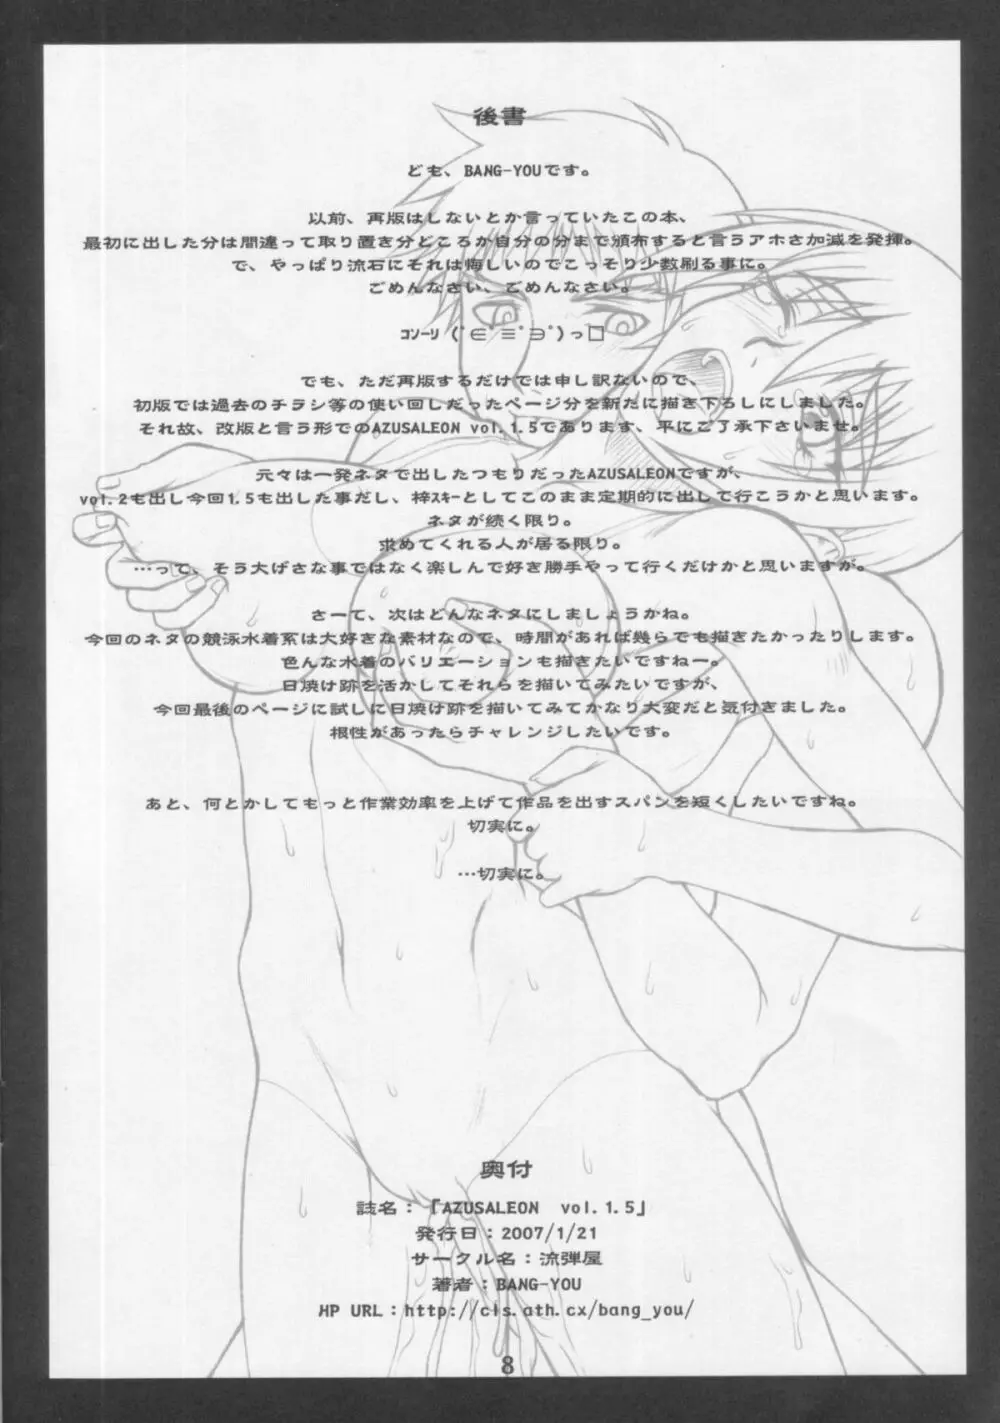 後書
ども、BANG-YOUです。
以前、再版はしないとか言っていたこの本、
最初に出した分は間違って取り置き分どころか自分の分まで頒布すると言うアホさ加減を発揮。
で、やっぱり流石にそれは悔しいのでこっそり少数刷る事に。
ごめんなさい、ごめんなさい。
ｺｿｰﾘ (ﾟ∈ ≡ﾟ∋ﾟ)っ□
でも、ただ再版するだけでは申し訳ないので、
初版では過去のチラシ等の使い回しだったページ分を新たに描き下ろしにしました。
それ故、改版と言う形でのAZUSALEON vol.1.5であります、平にご了承下さいませ。
元々は一発ネタで出したつもりだったAZUSALEONですが、
vol.2も出し今回1.5も出した事だし、梓ｽｷｰとしてこのまま定期的に出して行こうかと思います。
ネタが続く限り。
求めてくれる人が居る限り。
…って、そう大げさな事ではなく楽しんで好き勝手やって行くだけかと思いますが。
さーて、次はどんなネタにしましょうかね。
今回のネタの競泳水着系は大好きな素材なので、時間があれば幾らでも描きたかったりします。
色んな水着のバリエーションも描きたいですねー。
日焼け跡を活かしてそれらを描いてみたいですが、
今回最後のページに試しに日焼け跡を描いてみてかなり大変だと気付きました。
根性があったらチャレンジしたいです。
あと、何とかしてもっと作業効率を上げて作品を出すスパンを短くしたいですね。
切実に。
…切実に。
奥付
誌名：「AZUSALEON vol.1.5」
発行日：2007/1/21
サークル名：流弾屋
著者：BANG-YOU
HP URL：http://cls.ath.cx/bang_you/
8